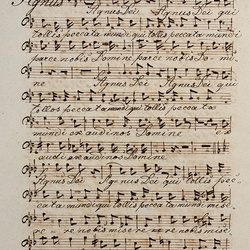 Agnus Agnus Dei Agnus Dei qui
tollis peccata mundi qui tollis peccata mundi
parce nobis Domine parce nobis Do-mi-
ne Agnus Dei Agnus Dei qui
tollis peccata mundi qui tollis peccata
mundi exaudi nos Domine ex
audi exaudi nos Domine
Agnus Dei Agnus Dei qui tollis pec-
cata mundi qui tollis peccata mundi mise
re - re nobis mise re - re nobis mise